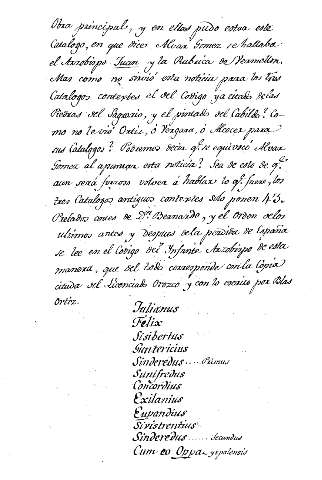 Obra principal, y en ellas pudo estar este
Catalogo, en que dice Alvar Gomez se hallaba
el Arzobispo Juan y la Rubrica de Vermellon.
Mas como no sirvió esta noticia para los tres
Catalogos contextes el del Codigo ya citado, de las
Piedras del Sagrario, y el pintado del Cabildo? Co-
mo no lo vió Ortiz, ó Vergara, ó Alcocer para
sus Catalogos? Podemos decir q.e se equivocó Alvar
Gomez al apuntar esta noticia? Sea de esto de q.e
aun será forzoso volver á hablar lo q.e fuere, los
tres Catalogos antiguos contextes solo ponen 43.
Prelados antes de D.n Bernardo, y el orden de los
ultimos antes y despues de la perdida de España
se lee en el Codigo del Infante Arzobispo de esta
manera, que del todo corresponde con la Copia
citada del Licenciado Orozco y con lo escrito por Blas
Ortiz.
Julianus
Felix
Sisibertus
Guntericius
Sinderedus .... Primus
Sunifredus
Concordius
Exilanius
Eupandius
Siristrentius
Sinderedus ..... secundus
Cum eo Oppa yspalensis